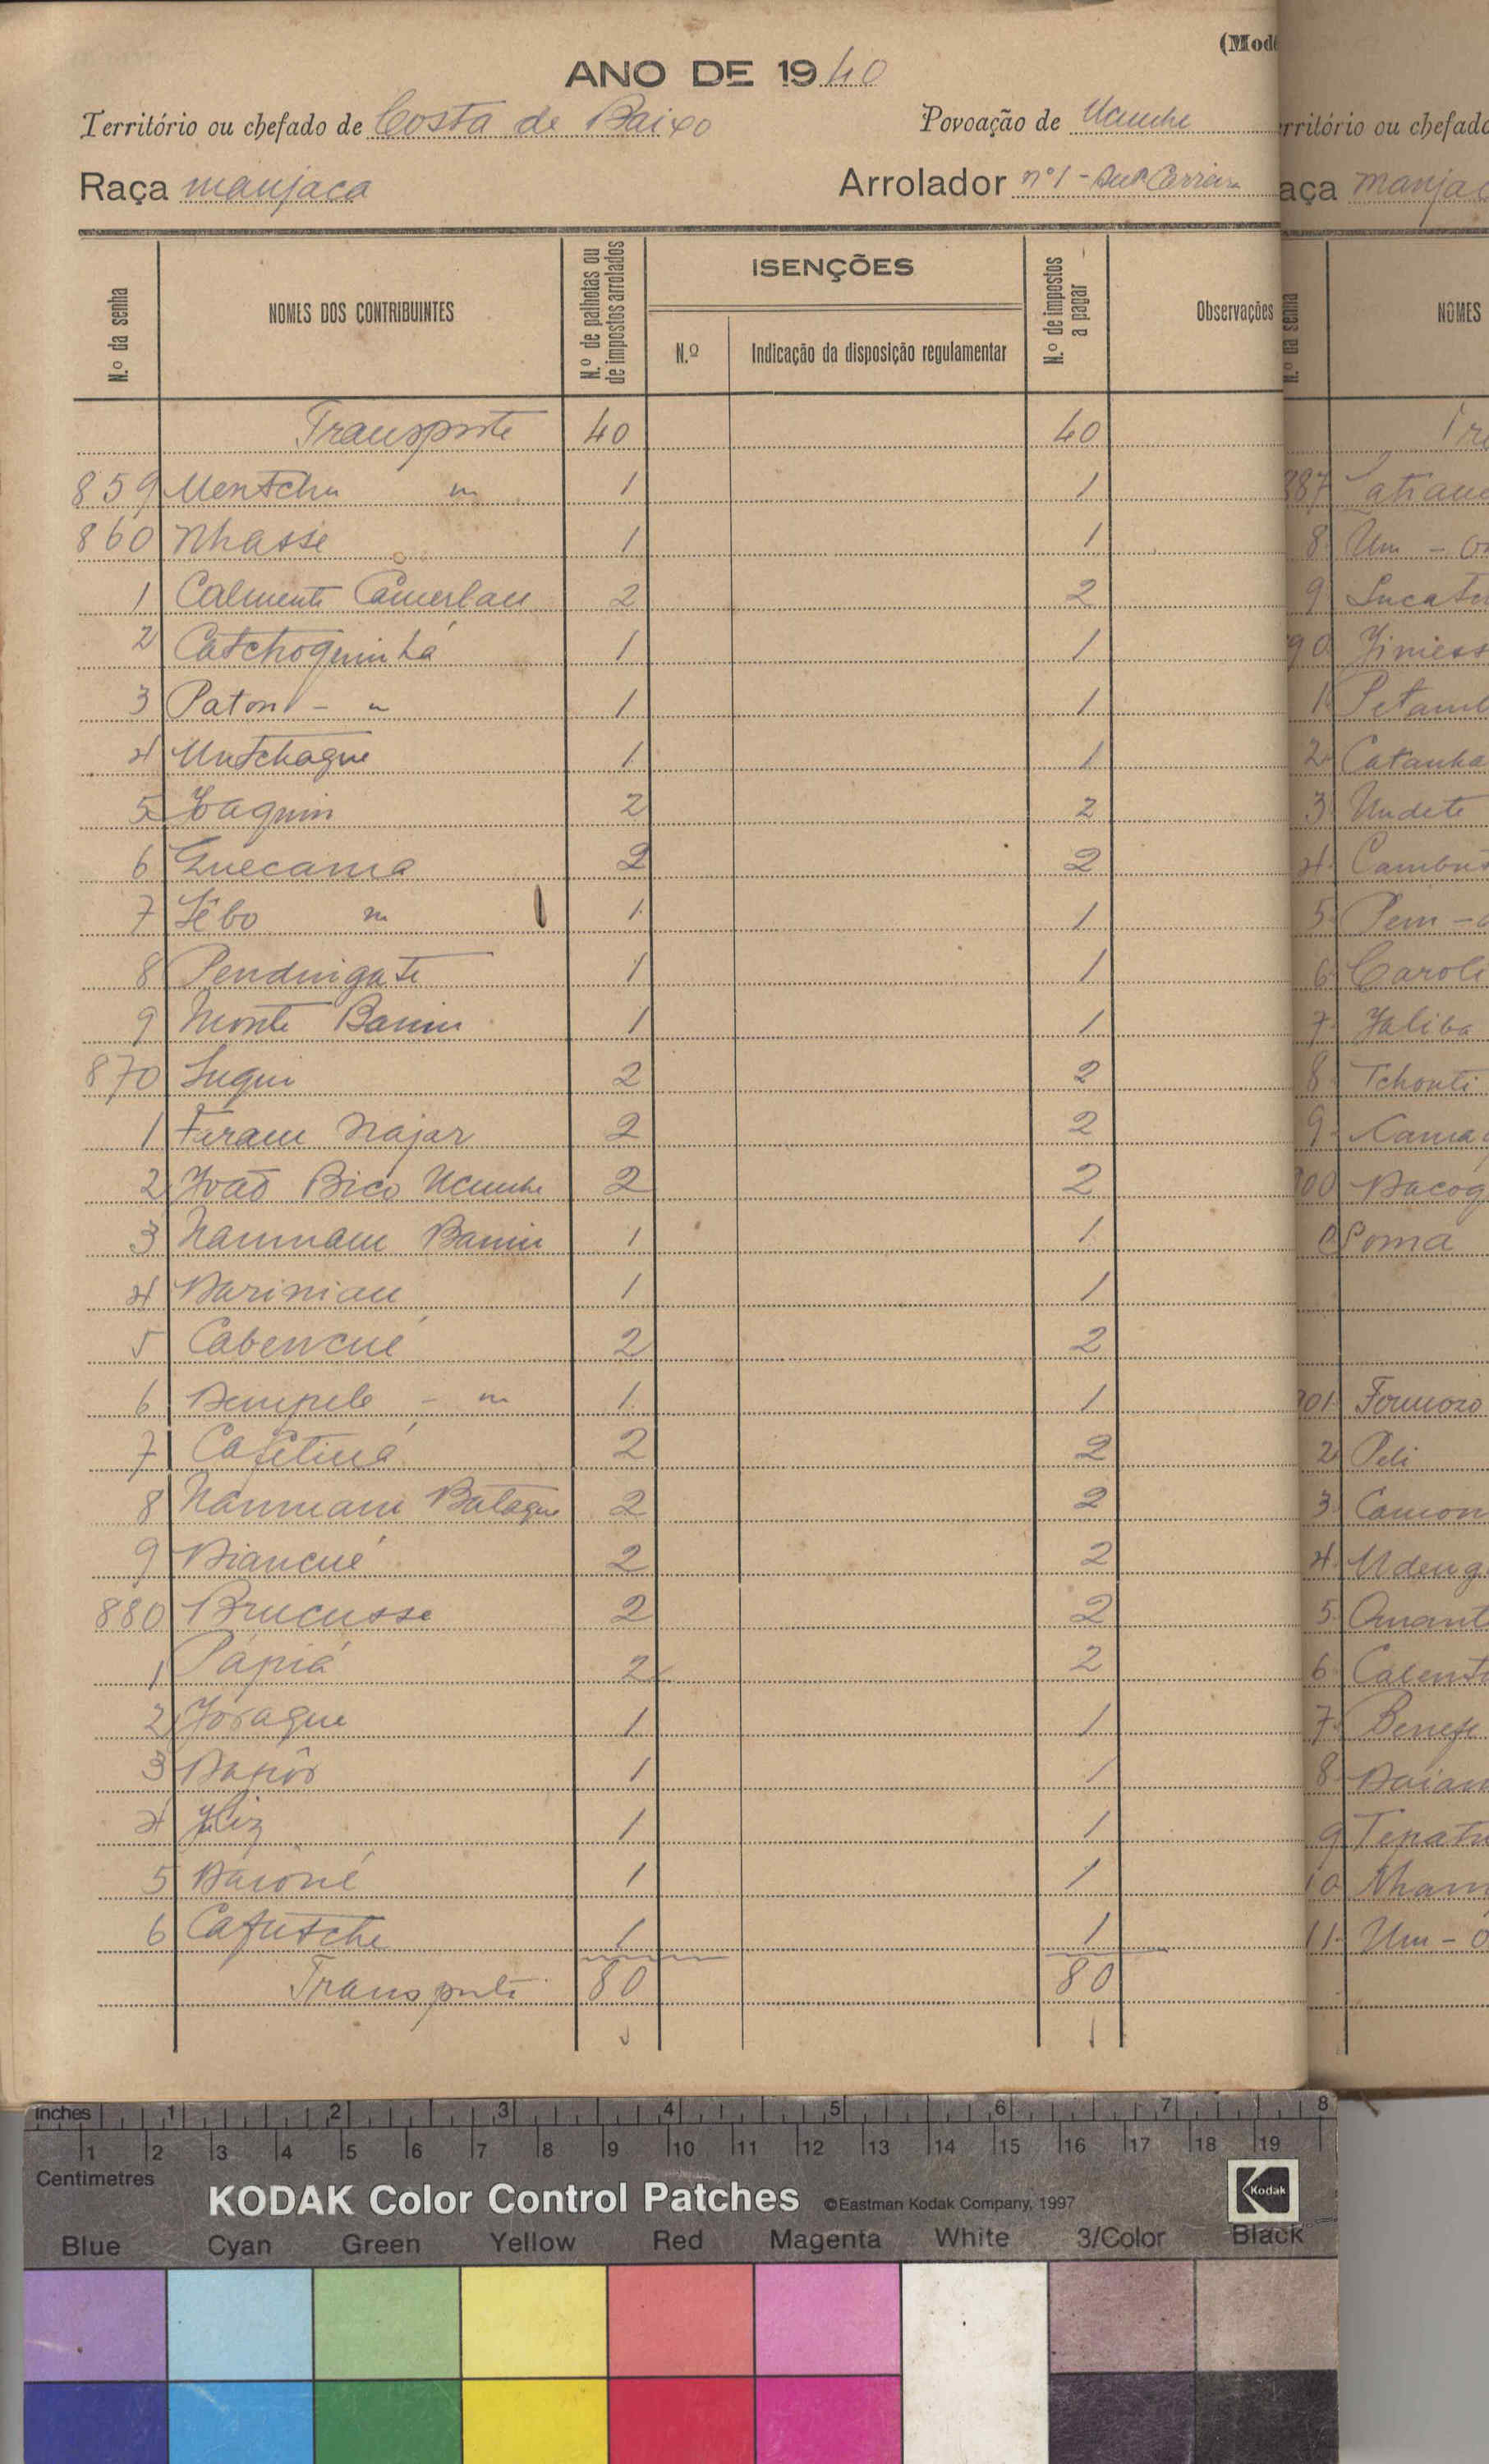 (Mod
ANO DE 1940
Território ou chefado de Costa de Baixo Povoação de Ucunhe
Raça manjaca Arrolador nº1 -
N.º da senha
NOMES DOS CONTRIBUINTES
N.º de palhotas ou de impostos arrolados
ISENÇÕES
N.º
Indicação da disposição regulamentar
N.º de impostos a pagar
Observações
Transporte 40 40
859 Mentchu m 1 1
860 Nhasse 1 1
1 Calmente 2 2
2 Catchoguinhá 1 1
3 Paton - m 1 1
4 Untchague 1 1
5 Joaquim 2 2
6 Guecama 2 2
7 Sêbo m 1 1
8 Pendingate 1 1
9 Monte Banim 1 1
870 Sugui 2 2
1 Feram Najar 2 2
2 João Bico Ucunhe 2 2
3 Nammam Banim 1 1
4 Dariniam 1 1
5 Cabencué 2 2
6 Dempele - m 1 1
7 Cafetiná 2 2
8 Nammam Batague 2 2
9 Diancué 2 2
880 Brucusse 2 2
1 Pápiá 2 2
2 Joságue 1 1
3 Dapôs 1 1
4 1 1
5 Daioné 1 1
6 Cafutche 1 1
Transporte 80 80
rritório ou chefado
aça manjac
N.º da senha
NOMES
Tr
887
8 Um -
9 Sucatu
90
1 Petamb
2 Catanha
3 Undete
4 Cambu
5 Pem -
6 Caroli
7 Jaliba
8 Tchonti
9 Cama
900 Dacog
Poma
901 Formozo
2 Peli
3 Camon
4 Udeng
5 Omant
6 Calent
7 Benefe
8 Daian
9 Tepatu
10 Nham
11 Um -
inches 1 2 3 4 5 6 7 8
1 2 3 4 5 6 7 8 9 10 11 12 13 14 15 16 17 18 19
Centimetres
KODAK Color Control Patches ©Eastman Kodak Company, 1997 Kodak
Blue Cyan Green Yellow Red Magenta White 3/Color Black